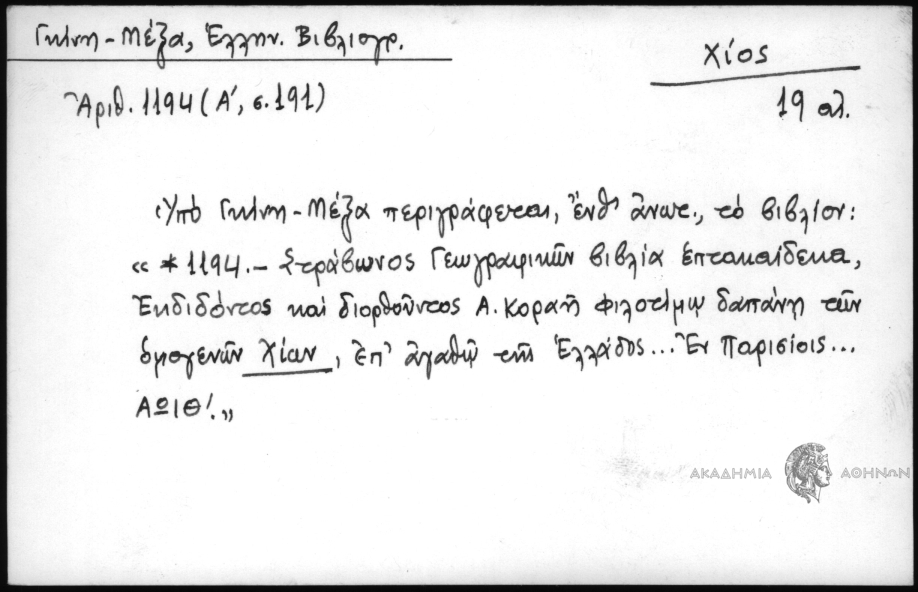 Γκίνη - Μέξα, Ἑλλην. Βιβλιογρ.
Χίος
Ἀριθ. 1194 (Α', σ. 191)
19 αἰ.
Ὑπὸ Γκίνη - Μέξα περιγράφεται, ἔνθ' ἀνωτ., τὸ βιβλίον:
« * 1194. – Στράβωνος Γεωγραφικῶν βιβλία ἑπτακαίδεκα,
Ἐκδιδόντος καὶ διορθοῦντος Α. Κοραῆ φιλοτίμῳ δαπάνῃ τῶν
ὁμογενῶν Χίων, ἐπ' ἀγαθῷ τῆς Ἑλλάδος... Ἐν Παρισίοις...
ΑΩΙΘ'.»
ΑΚΑΔΗΜΙΑ ΑΘΗΝΩΝ